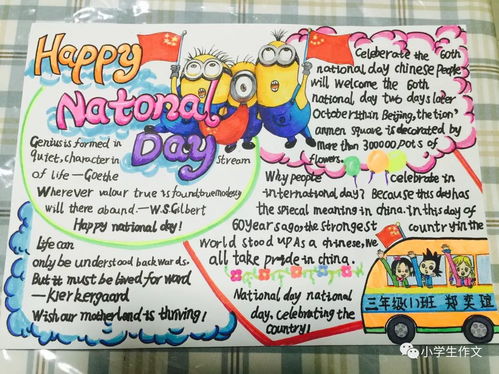 Happy
Natonal
Day
Genius is formed in
quiet, character in stream
of life—Goethe
Wherever valour true is found, true modesty
will there abound.—W.S.Gilbert
Happy national day!
Life can
only be understood backwards.
But it must be lived for ward
—Kierkergaard
Wish our motherland is thriving!
Celeberate the 60th
national day chinese people
will welcome the 60th
national day two days later
October 1th in Beijing, the tion'
anmen square is decorated by
more than 300000 pots of
flowers.
Why people celebrate in
international day? Because this day has
the spiecal meaning in china. In this day of
60 years ago the strongest country in the
world stood up As a chinese, We
all take pride in china.
National day national
day, celebrating the
Country!
三年级(1)班 郑奕谊
小学生作文